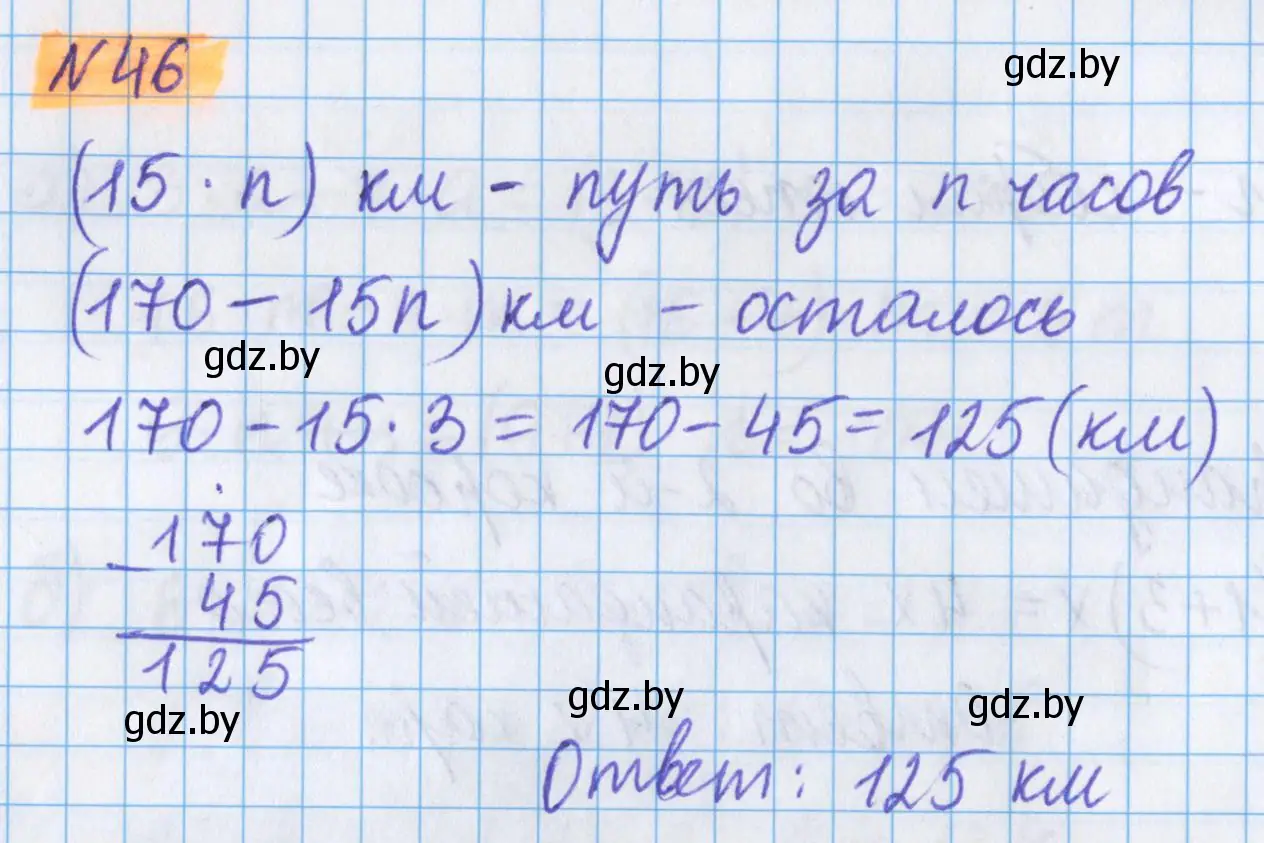 № 46
gdz.by
(15 · n) км – путь за n часов
(170 – 15n) км – осталось
gdz.by
gdz.by
170 – 15 · 3 = 170 – 45 = 125 (км)
170
– 45
125
gdz.by
gdz.by
gdz.by
Ответ: 125 км